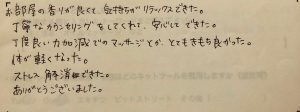 「お部屋の香りが良くて、気持ちがリラックスできた。
丁寧なカウンセリングをしてくれて、安心してできた。
丁度良い力加減でのマッサージとか、とてもきもち良かった。
体が軽くなった。
ストレス解消出来できた。
ありがとうございました。